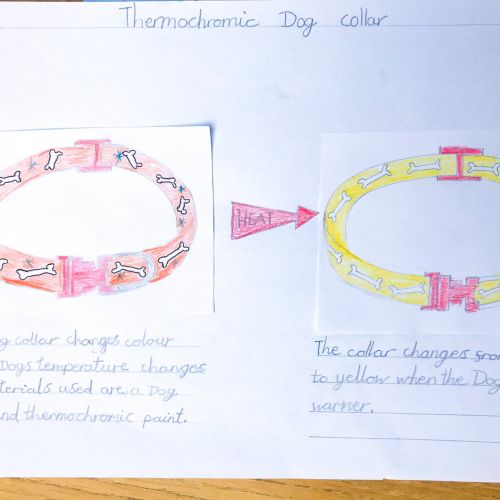 Thermochromic Dog collar
HEAT
collar changes colour
Dogs temperature changes
used are, a Dog
thermochromic paint.
The collar changes from
to yellow when the Dog
warner.